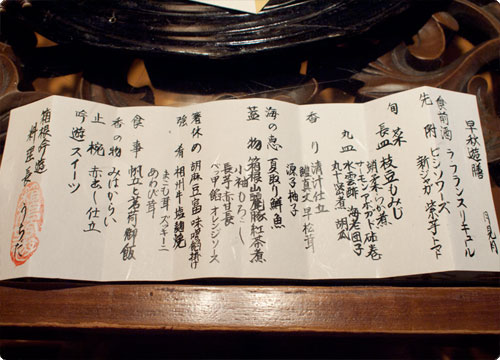 早秋遊膳
月見月
食前酒 ラフランスリキュール
先附 ビシソワーズ
新ジャガ 栄子 トマト
旬菜
長皿 枝豆もみじ
絹衣八幡煮
サーモンアボカド砧巻
丸皿 水雲酢 海老団子
丸十蜜煮 胡瓜
香り 清汁仕立
鱧真丈 早松茸
海の恵 夏取り鮮魚
蓋物 箱根山麓豚紅茶煮
小袖もろこし
長芋 赤甘長
べっ甲餡 オレンジソース
箸休め 胡麻豆富
強肴 相州牛塩麹焼
まこも茸 ズッキーニ
あわび茸
食事 帆立と茗荷御飯
香の物 みはからい
止椀 赤出し仕立
吟遊スイーツ
箱根吟遊
料理長